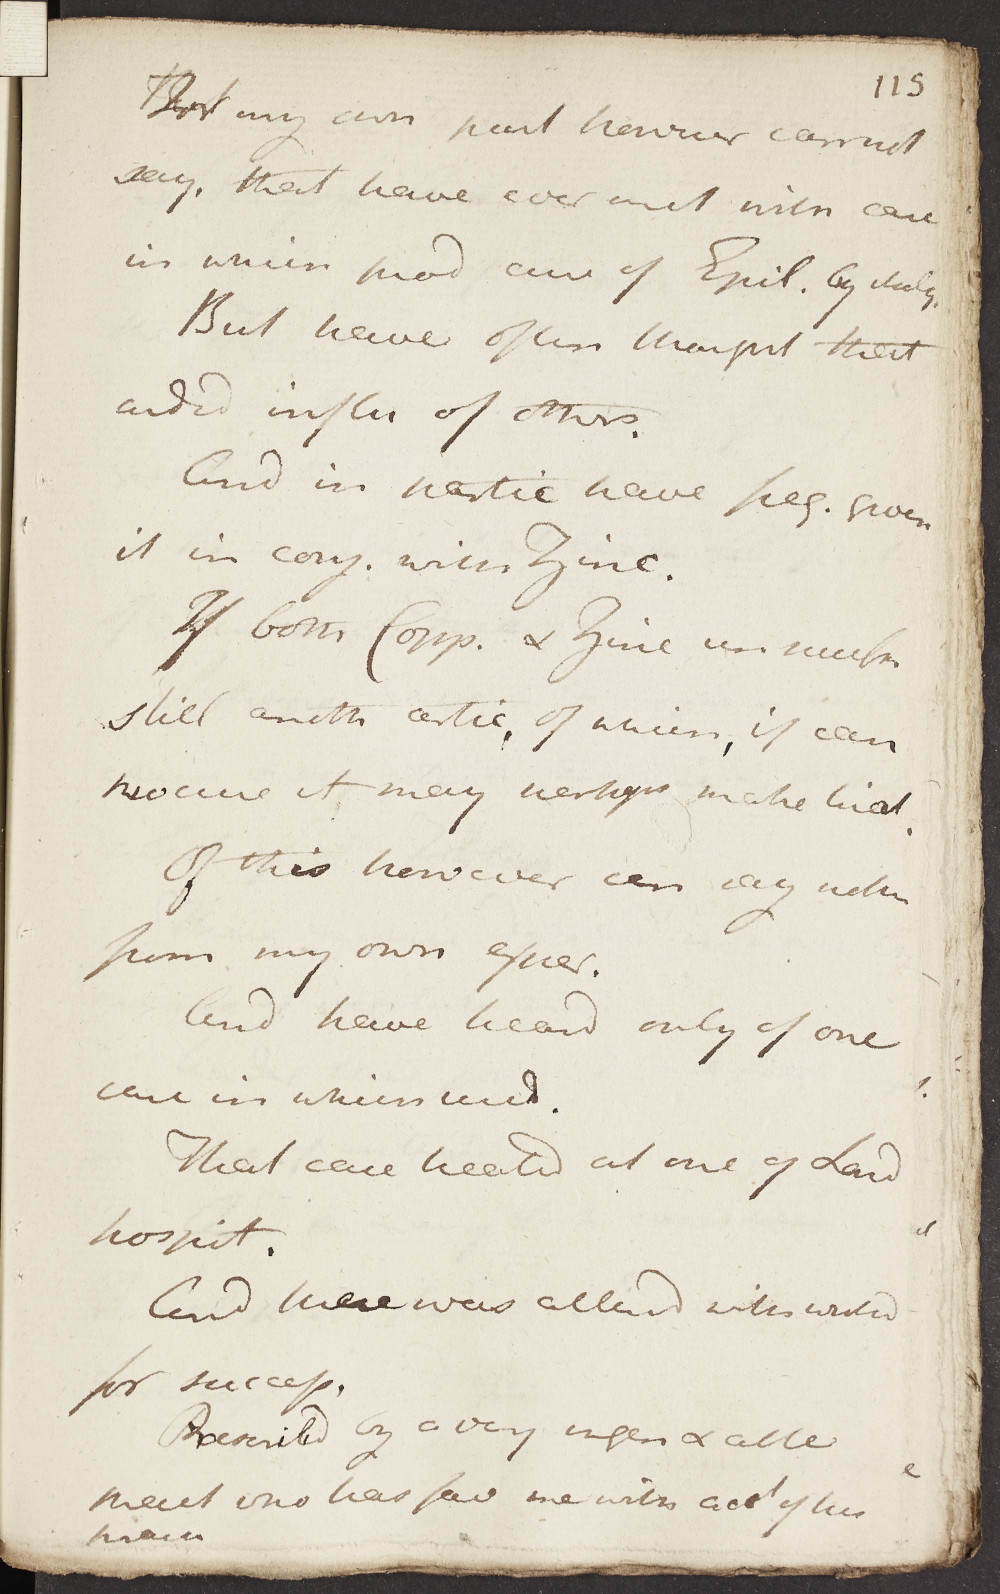 115
For my own part however cannot
say, that have ever met with case
in which prod cure of Epil. by it only.
But have often thought that
aided influ of others.
And in partic have freq. given
it in conj. with Zinc.
If both Copp. & Zinc unsuccessf
still anoth artic, of which, if can
procure it may perhaps make trial.
Of this however can say nothn
from my own exper.
And have heard only of one
case in which used.
That case treatd at one of Lond
hospit.
And there was attend with wishd
for success.
Prescribd by a very ingen & able
pract who has fav me with acct of his
pract